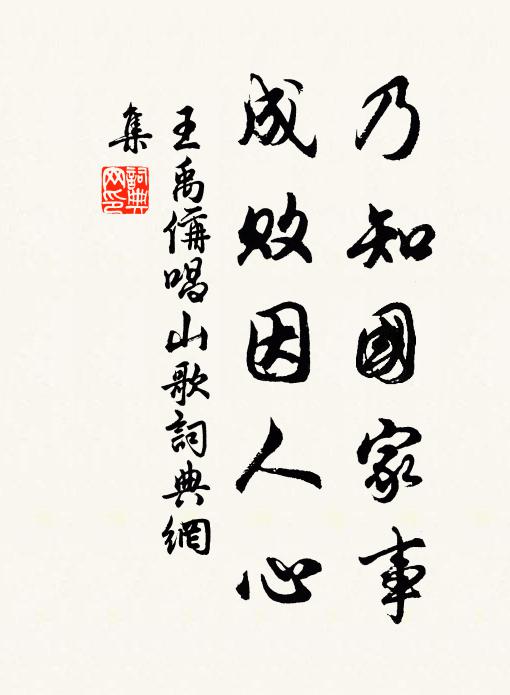 乃知國家事
成敗因人心
王禹偁唱山歌詞典網
集
詞典網印